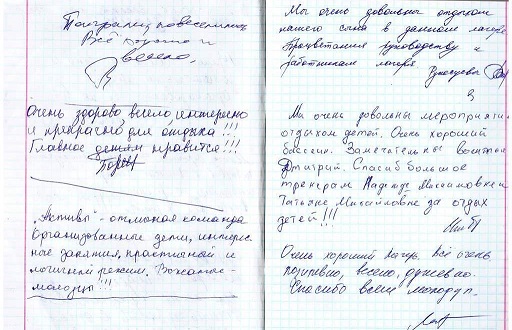 Поиграли, повеселились
Всё хорошо и
весело.
Очень здорово, весело, интересно
и прекрасно для отдыха!!!
Главное детям нравится!!!
"Активы" - отличная команда
Организованные дети, интерес-
ные занятия, практичный и
логичный режим. Вожатые -
молодцы!!!
Мы очень довольны отдыхом
нашего сына в данном лагере
Процветания руководству и
работникам лагеря
Мы очень довольны мероприятия
отдыхом детей. Очень хороший
бассейн. Замечательные вожатые
Дмитрий. Спасиб большое
тренерам Надежде Михайловне и
Татьяне Михайловне за отдых
детей!!!
Очень хороший лагерь. Всё очень
позитивно, весело,
Спасибо всем